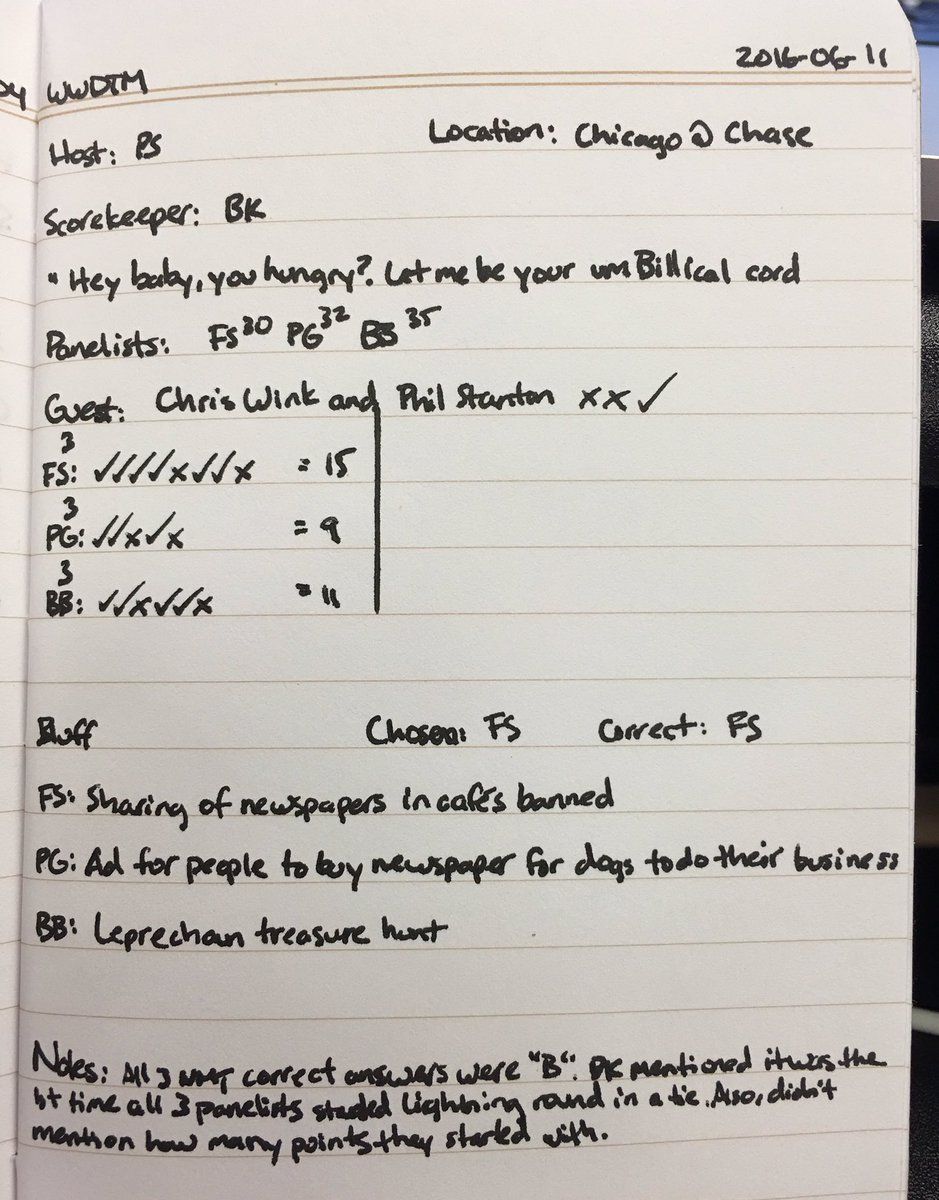 WWDTM 2016-06-11
Host: PS Location: Chicago @ Chase
Scorekeeper: BK
"Hey baby, you hungry? Let me be your umBillical cord
Panelists: FS30 PG32 BB35
Guest: Chris Wink and Phil Stanton xx✓
3
FS: ✓✓✓✓x✓✓x = 15
3
PG: ✓✓x✓x = 9
3
BB: ✓✓x✓✓x = 11
Bluff Chosen: FS Correct: FS
FS: Sharing of newspapers in cafés banned
PG: Ad for people to buy newspaper for dogs to do their business
BB: Leprechan treasure hunt
Notes: All 3 NMJ correct answers were "B". BK mentioned it was the
1st time all 3 panelists started Lightning round in a tie. Also, didn't
mention how many points they started with.